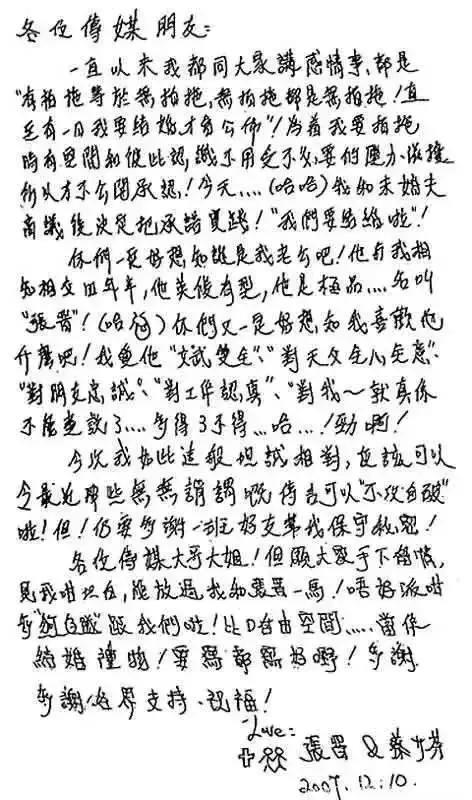 各位傳媒朋友：
一直以來我都同大家講感情事，都是
"有拍拖等於無拍拖，無拍拖都是無拍拖！直
至有一日我要結婚，才會公佈"！為着我要拍拖
時有空間和彼此認識不用受不必要的壓力、滋擾
所以才不公開承認！今天....(哈哈)我和未婚夫
商議後決定把承諾實踐！"我們要結婚啦"！
你們一定好想知誰是我老公吧！他與我相
知相交四年半，他英俊有型，他是極品....名叫
"張晉"！(哈哈)你們又一定好想知我喜歡他
什麼吧！我愛他"文武雙全"、"對天父全心全意"、
"對朋友忠誠"、"對工作認真"、"對我～就真係
不能盡說了....多得了不得...哈...！勁啊！
今次我如此這般坦誠相對，應該可以
令最近那些無無謂謂嘅傳言可以"不攻自破"
啦！但！仍要多謝一班好友幫我保守秘密！
各位傳媒大哥大姐！但願大家手下留情，
見我咁坦白，能放過我和張晉一馬！唔好派咁
多"狗仔隊"跟我們啦！比D自由空間.....當係
結婚禮物！要寫都寫好嘢！多謝
多謝各界支持、祝福！
Love:
張晉 & 蔡少芬
2007.12.10.